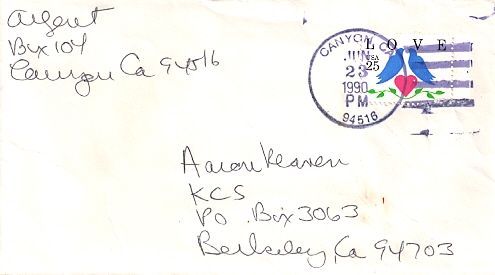 Argent
Box 104
Canyon Ca 94516
CANYON, CA
JUN
23
1990
PM
94516
LOVE
USA
25
Aaron
KCS
PO Box 3063
Berkeley, Ca 94703